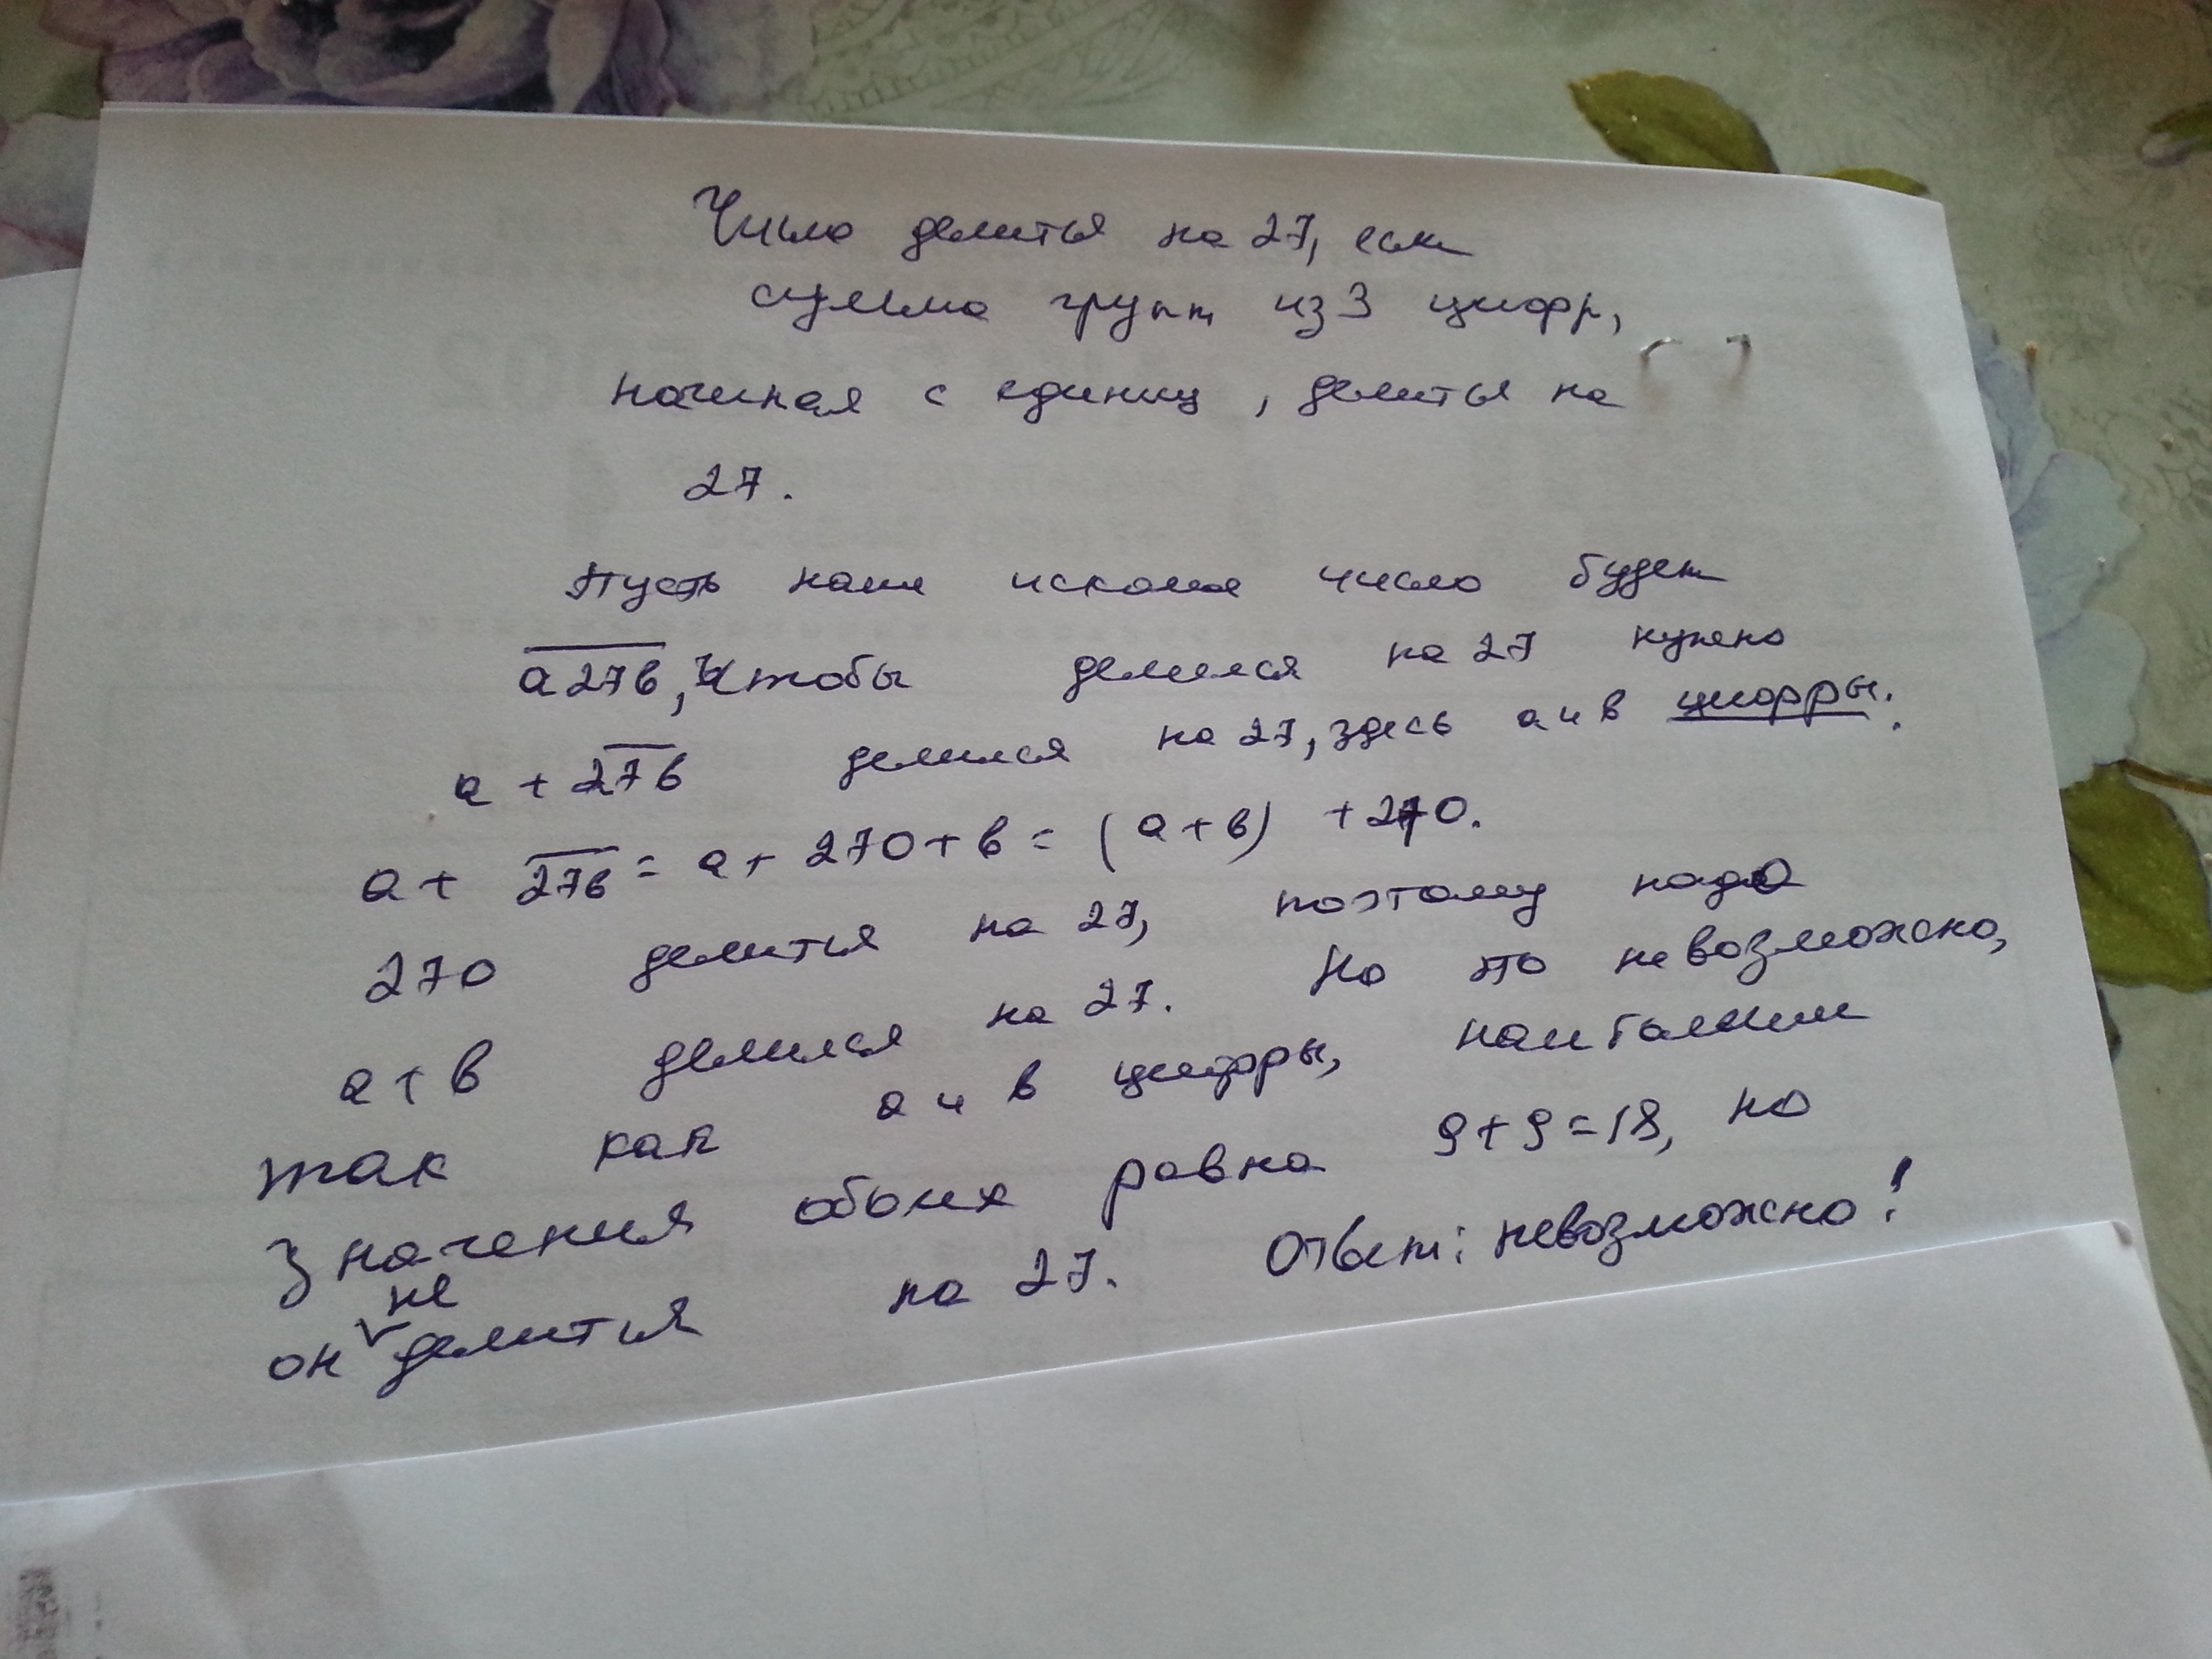 Число делится на 27, если
сумма групп из 3 цифр,
начиная с единиц, делится на
27.
Пусть наше искомое число будет
a27b, Чтобы делился на 27 нужно
a + 27b делился на 27, здесь a и b цифры.
a + 27b = a + 270 + b = (a + b) + 270.
270 делится на 27, поэтому надо
a + b делился на 27. Но это невозможно,
так как a и b цифры, наибольшие
значения обоих равна 9 + 9 = 18, но
он не делится на 27. Ответ: невозможно!